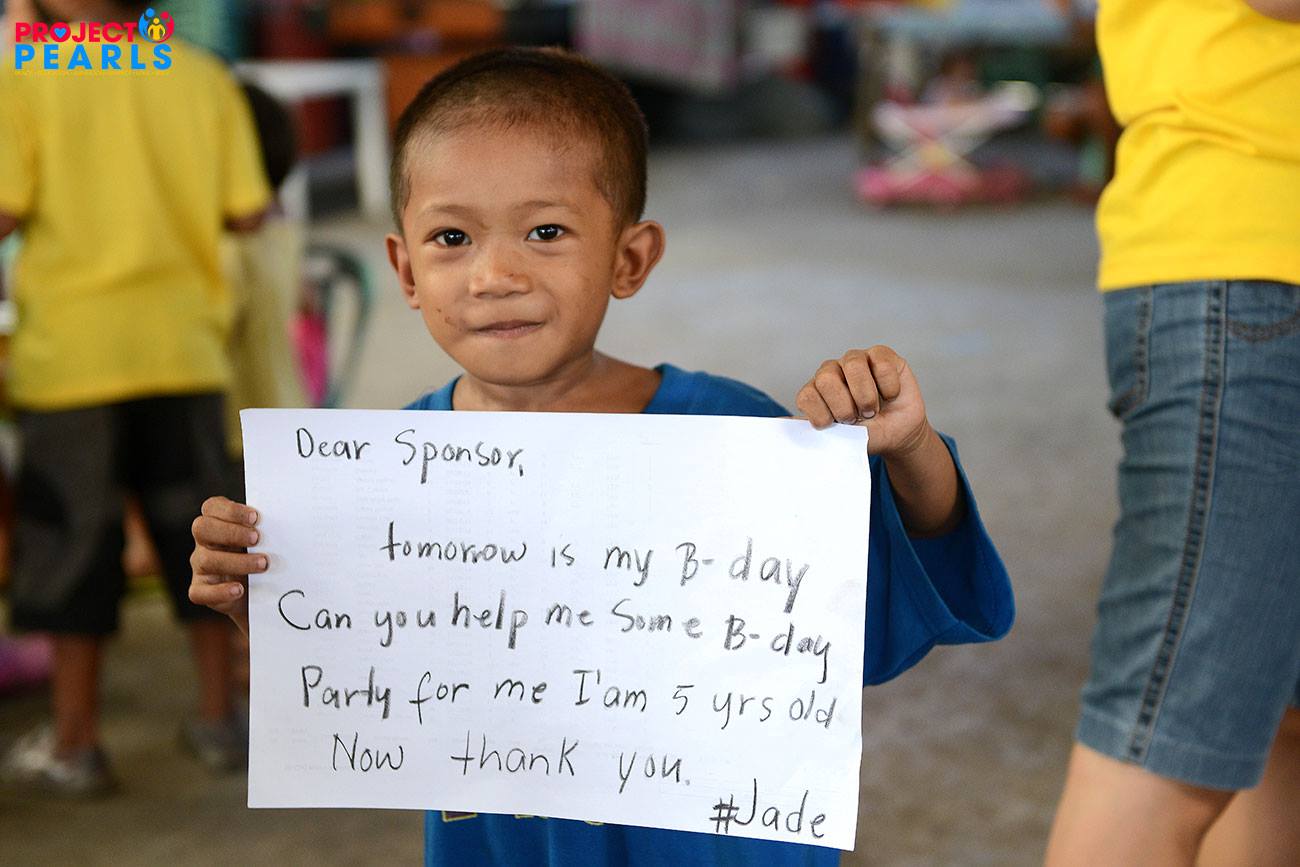 PROJECT
PEARLS
Dear Sponsor,
tomorrow is my B-day
Can you help me Some B-day
Party for me I'am 5 yrs old
Now thank you.
#Jade